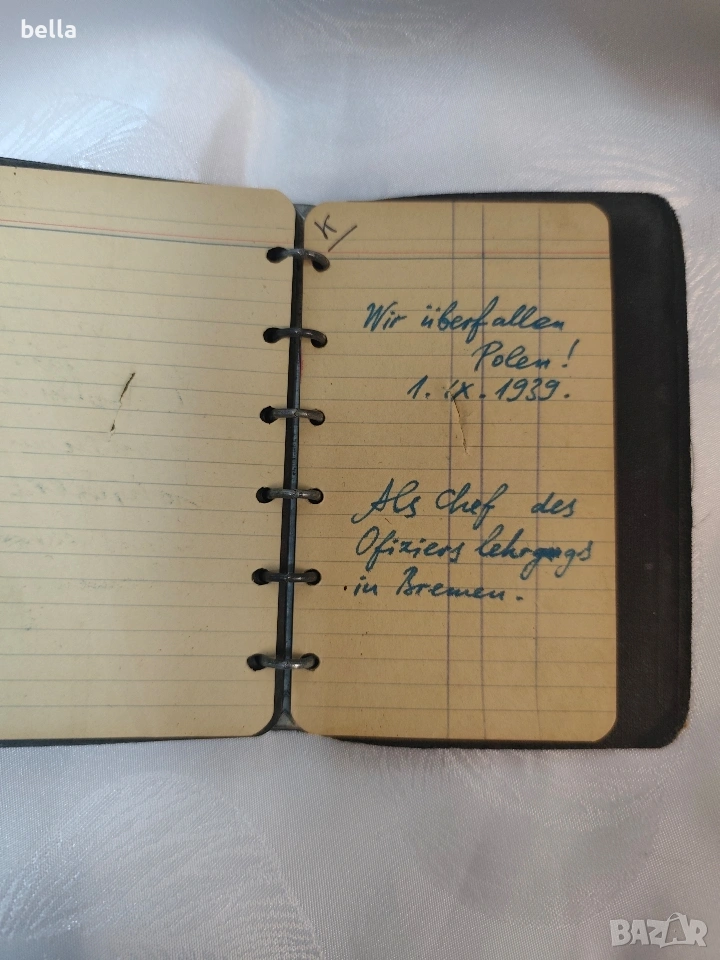 bella
Wir überfallen
Polen!
1. IX. 1939.
Als Chef des
Ofiziers lehrgngs
in Bremen.
BAZAR